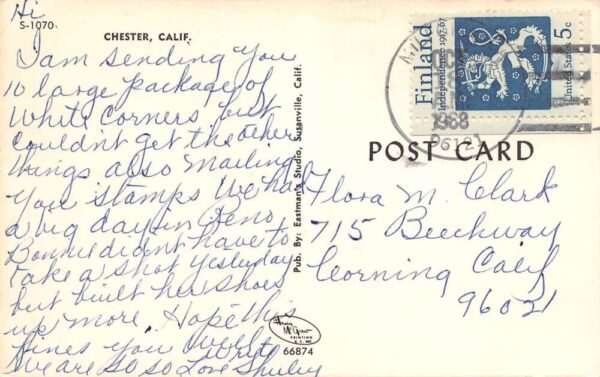 Hi
S-1070
CHESTER, CALIF.
I am sending you
10 large package of
White Corners but
couldn't get the others
things also Mailing
you stamps We had
a big day in Reno
Bonnie didnt have to
take a shot yesterday
but built her shoes
up more. Hope this
fines you well
Write
We are so so Love Shirley
Pub. By: Eastman's Studio, Susanville, Calif.
Henry McGrew
PRINTING
66874
Finland
Independence 1917-67
5c
United States
1968
96121
POST CARD
Flora M. Clark
715 Beechway
Corning Calif
96021